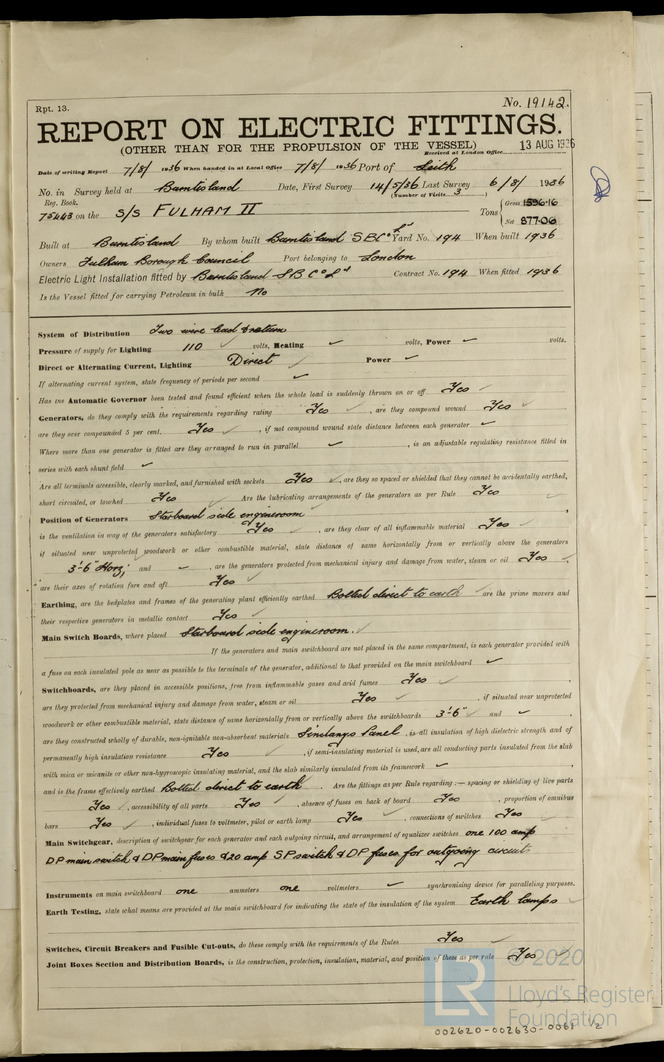 Rpt. 13.
No. 19142.
REPORT ON ELECTRIC FITTINGS.
(OTHER THAN FOR THE PROPULSION OF THE VESSEL)
Received at London Office 13 AUG 1936
Date of writing Report 7/8/1936 When handed in at Local Office 7/8/1936 Port of Leith
No. in Survey held at Burntisland Date, First Survey 14/5/36 Last Survey 6/8/1936
Reg. Book. (Number of Visits 3)
75443 on the S/S FULHAM II Tons { Gross 1596.16
Net 877.06
Built at Burntisland By whom built Burntisland SBCo Ld Yard No. 194 When built 1936
Owners Fulham Borough Council Port belonging to London
Electric Light Installation fitted by Burntisland SB Co Ld Contract No. 194 When fitted 1936
Is the Vessel fitted for carrying Petroleum in bulk No
System of Distribution Two wire lead
Pressure of supply for Lighting 110 volts, Heating volts, Power volts.
Direct or Alternating Current, Lighting Direct Power
If alternating current system, state frequency of periods per second
Has the Automatic Governor been tested and found efficient when the whole load is suddenly thrown on or off Yes
Generators, do they comply with the requirements regarding rating Yes, are they compound wound Yes
are they over compounded 5 per cent. Yes, if not compound wound state distance between each generator
Where more than one generator is fitted are they arranged to run in parallel, is an adjustable regulating resistance fitted in
series with each shunt field
Are all terminals accessible, clearly marked, and furnished with sockets Yes, are they so spaced or shielded that they cannot be accidentally earthed,
short circuited, or touched Yes Are the lubricating arrangements of the generators as per Rule Yes
Position of Generators Starboard side engineroom,
is the ventilation in way of the generators satisfactory Yes, are they clear of all inflammable material Yes,
if situated near unprotected woodwork or other combustible material, state distance of same horizontally from or vertically above the generators
3'-6" Horz; and, are the generators protected from mechanical injury and damage from water, steam or oil Yes,
are their axes of rotation fore and aft Yes
Earthing, are the bedplates and frames of the generating plant efficiently earthed Bolted direct to earth are the prime movers and
their respective generators in metallic contact Yes
Main Switch Boards, where placed Starboard side engineroom.
If the generators and main switchboard are not placed in the same compartment, is each generator provided with
a fuse on each insulated pole as near as possible to the terminals of the generator, additional to that provided on the main switchboard
Switchboards, are they placed in accessible positions, free from inflammable gases and acid fumes Yes,
are they protected from mechanical injury and damage from water, steam or oil Yes, if situated near unprotected
woodwork or other combustible material, state distance of same horizontally from or vertically above the switchboards 3'-6" and,
are they constructed wholly of durable, non-ignitable non-absorbent materials Sindanyo Panel, is all insulation of high dielectric strength and of
permanently high insulation resistance Yes, if semi-insulating material is used, are all conducting parts insulated from the slab
with mica or micanite or other non-hygroscopic insulating material, and the slab similarly insulated from its framework,
and is the frame effectively earthed Bolted direct to earth. Are the fittings as per Rule regarding:— spacing or shielding of live parts
Yes, accessibility of all parts Yes, absence of fuses on back of board Yes, proportion of omnibus
bars Yes, individual fuses to voltmeter, pilot or earth lamp Yes, connections of switches Yes
Main Switchgear, description of switchgear for each generator and each outgoing circuit, and arrangement of equalizer switches one 100 amp
DP main switch & DP main fuses & 20 amp SP switch & DP fuses for outgoing circuits
Instruments on main switchboard one ammeters one voltmeters synchronising device for paralleling purposes.
Earth Testing, state what means are provided at the main switchboard for indicating the state of the insulation of the system Earth lamps
Switches, Circuit Breakers and Fusible Cut-outs, do these comply with the requirements of the Rules Yes
Joint Boxes Section and Distribution Boards, is the construction, protection, insulation, material, and position of these as per rule Yes
LR © 2020
Lloyd's Register
Foundation
002620-002630-0061 1/2